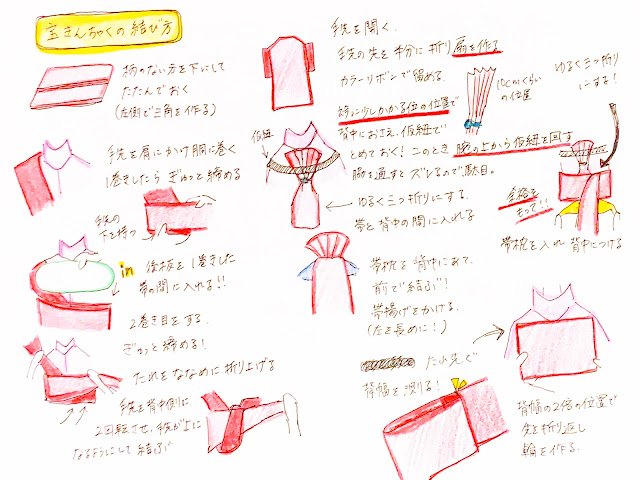 宝きんちゃくの結び方
柄のない方を下にして
たたんでおく
(左側で三角を作る)
手先を肩にかけ胴に巻く
1巻きしたら ぎゅっと締める
手先の
下を持つ
in 後板を1巻きした
帯の間に入れる!!
2巻き目をする.
ぎゅっと締める!
たれをななめに折り上げる
手先を背中側に
2回転させ、手先が上に
なるようにして結ぶ
手先を開く.
手先の先を半分に折り扇を作る
カラーリボンで留める.
10cmくらい
の位置
ゆるく三つ折り
にする!
少しかかる位の位置で
背中におさえ、仮紐で
とめておく! このとき 腕の上から仮紐を回す
脇を通すと ズレるので駄目。
仮紐
ゆるく三つ折りにする.
帯と背中の間に入れる
もって!!
帯枕を入れ 背中につける
帯枕を背中にあて、
前で結ぶ!
帯揚げをかける.
(左を長めに!)
たれ先で
背幅を測る!
背幅の2倍の位置で
先を折り返し
輪を作る.